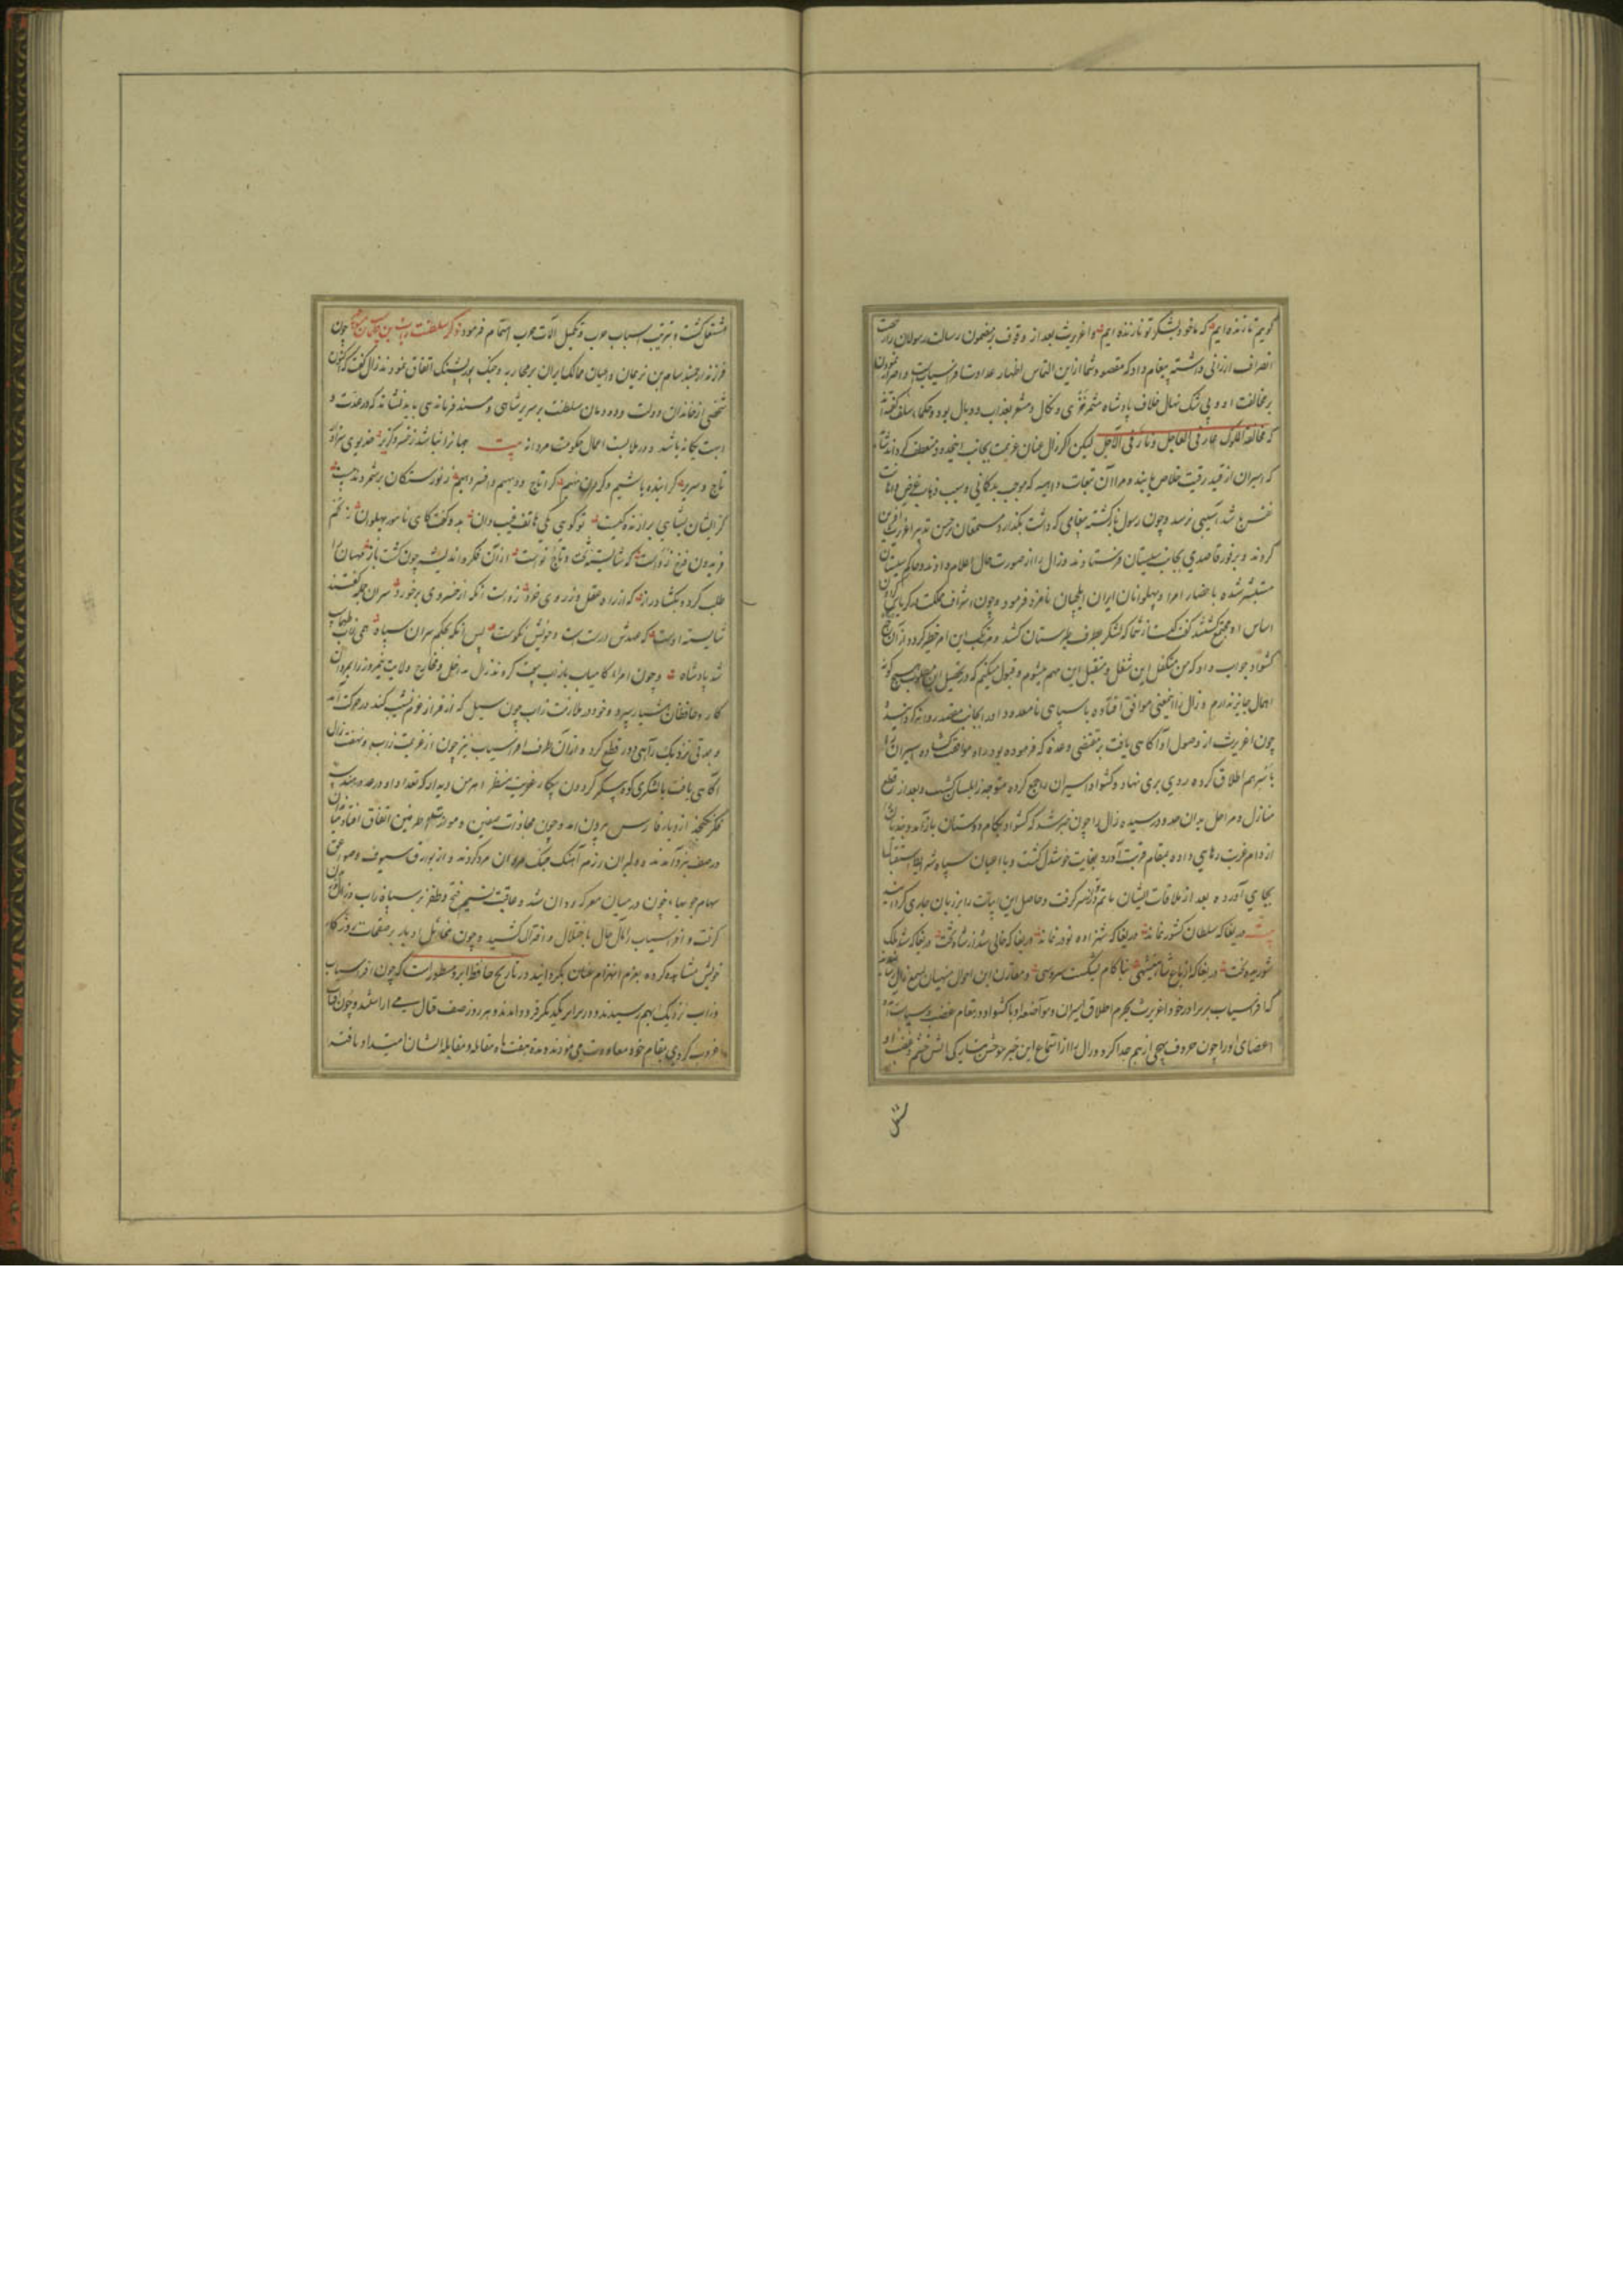 گویم تا زنده ایم که ما خود بشکر تو نازنده ایم و اغریرث بعد از وقوف بر مضمون رسالت رسولان را رخصت
انصراف ارزانی داشته پیغام داد که مقصود شما ازین التماس اظهار عداوت افراسیابست و اصرار نمودن
بر مخالفت او و بی شک نهال خلاف پادشاه مثمر خزی و نکال و مشعر بعذاب و وبال بود و حکماء سلف گفته اند
که مخالفة الملوک عار فی العاجل و نار فی الآجل لیکن اگر زال عنان عزیمت بجانب این حدود منعطف گرداند شاید
که اسیران از قید رقیت خلاص یابند و مرا از آن تبعات واهیه که موجب بدگمانی و سبب ذهاب عرض و اهانت
نفس باشد آسیبی نرسد و چون رسول بازگشته پیغامی که داشت بگذارد مستمعان بر حسن تدبیر اغریرث آفرین
کردند و بر فور قاصدی بجانب سیستان فرستادند و زال را از صورت حال اعلام دادند و حاکم سیستان
مستبشر شده باحضار امرا و پهلوانان ایران ایلچیان نامزد فرمود و چون اشراف مملکت بدرگاه
اساس او مجتمع گشتند گفت کیست از شما که لشکر بطرف طبرستان کشد و مرتکب این امر خطیر گردد از آن میان
کشواد جواب داد که من متکفل این شغل و متقبل این مهم میشوم و قبول میکنم که در تحصیل این مطلوب هیچ گونه
اهمال جایز ندارم و زال را اینمعنی موافق افتاده با سپاهی نامعدود او را بجانب مقصد روانه گردانید
چون اغریرث از وصول او آگاهی یافت بمقتضی وعده که فرموده بود در راه موافقت گشاده اسیران را
باسرهم اطلاق کرده روی بری نهاد و کشواد اسیران را جمع کرده متوجه زابلستان گشت و بعد از قطع
منازل و مراحل بدان حدود رسیده زال را چون خبر شد که کشواد بکام دوستان بازآمد و بندیان
از دام غربت رهایی داده بمقام قربت آورد بغایت خوشدل گشت و با اعیان سپاه شرایط استقبال
بجای آورده بعد از ملاقات ایشان ماتم نوذر از سر گرفت و حاصل این ابیات را بر زبان جاری گردانید
بیت دریغا که سلطان کشور نماند دریغا که شهزاده نوذر نماند دریغا که خالی شد از شاه تخت دریغا که شد ملک
شوریده بخت دریغا که از باغ شاهنشهی بناکام بشکست سرو سهی و مقارن این احوال منهیان بسمع زال رسانیدند
که افراسیاب برادر خود اغریرث بجرم اطلاق اسیران و مواضعه او با کشواد در مقام غضب و سیاست
اعضای او را چون حروف تهجی از هم جدا کرد و زال را از استماع این خبر موحش آتش خشم و غضب
شل
مشتعل گشت و بترتیب اسباب حرب و تکمیل آلات حرب اهتمام فرمود ذکر سلطنت زاب بن چون
فرزند ارجمند سام بن نریمان و اعیان ممالک ایران بر محاربه و جنگ پور پشنگ اتفاق نمودند زال گفت که اکنون
شخصی از خاندان دولت و دودمان سلطنت بر سریر شاهی و مسند فرماندهی باید نشاند که در عدت و
اهبت یگانه باشد و در ملابست اعمال حکومت مردانه بیت جهانرا نباشد ز خسرو گزیر خدیوی سزاوار
تاج و سریر گر اینده باشیم و گر مهین نهیم گر او تاج و دیهیم و افسر دهیم ز نوررستگان برشمردند
کز ایشان بشاهی برازنده کیست تو گویی یکی هاتف غیب دان بدو گفت کای نامور پهلوان ز تخم
فریدون فرخ زو است که شایسته تخت و تاج نو است از آن فکر و اندیشه چون گشت باز مهان را
طلب کرد و بگشاد راز که از راه عقل و ز روی خرد زو است آنکه از خسروی برخورد سران جمله گفتند
شایسته اوست که عهدش درست است و خویش نکوست پس آنگه بحکم سران سپاه همی زاب طهماسب
شد پادشاه و چون امراء کامیاب با زاب بیعت کردند زال مداخل و مخارج ولایت نیمروز را بمردان
کار و حافظان هشیار سپرد و خود در ملازمت زاب چون سیل که از فراز عزم نشیب کند در حرکت آمد
و بمدتی نزدیک راهی دور قطع کرد و از آن طرف افراسیاب نیز چون از عزیمت زاب و نهضت زال
آگاهی یافت با لشکری کوه پیکر گردون پیکار عفریت منظر اهرمن دیدار که تعداد او در حد و هندسه
فکر نگنجد از دیار فارس بیرون آمد و چون محاذات صفین و مواجهه طرفین اتفاق افتاد مبارزان
در صف نبرد آمدند و دلیران رزم آهنگ جنگ مردان مرد کردند و از بوارق سیوف و صواعق
سهام جویهاء خون در میان معرکه روان شد و عاقبت نسیم فتح و ظفر بر سپاه زاب وزیدن
گرفت و افراسیاب را مآل حال باختلال و اختزال کشید و چون مخایل ادبار بر صفحات روزگار
خویش مشاهده کرد بعزم انهزام عنان بگردانید در تاریخ حافظ ابرو مسطور است که چون افراسیاب
و زاب نزدیک بهم رسیدند و در برابر یکدیگر فرود آمدند و هر روز صف قتال می آراستند و چون آفتاب
غروب کردی بمقام خود معاودت می نمودند و مدة هفت ماه مقاتله و مقابله ایشان امتداد یافته